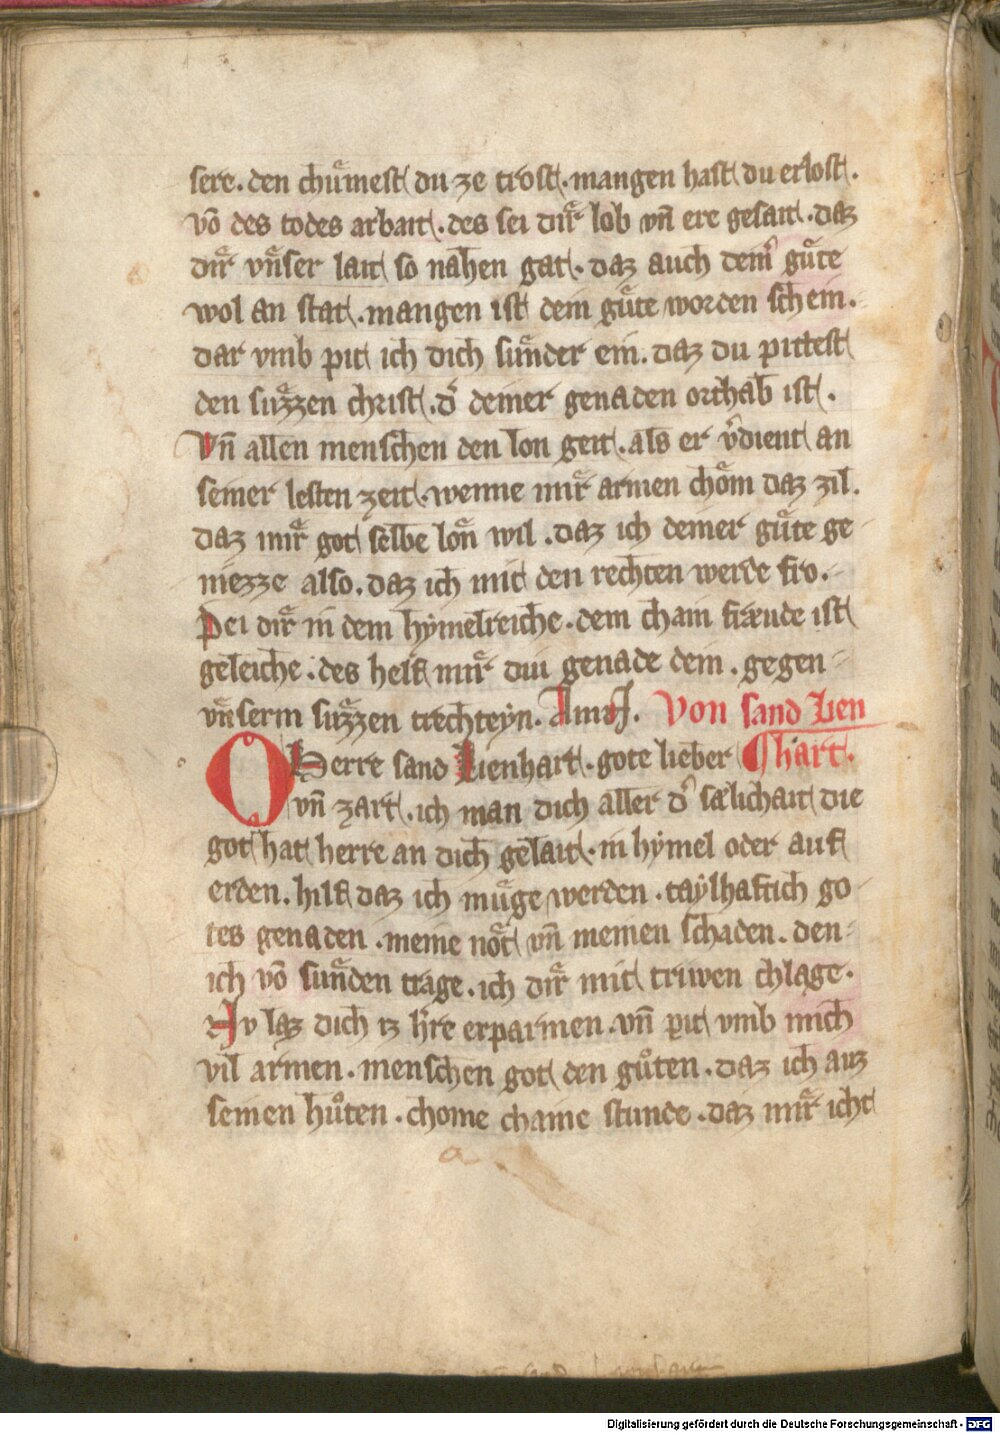 sere. den chuͤmest du ze trost. mangen hast du erlost.
võ des todes arbait. des sei dir lob vñ ere gesait. daz
dir vnser lait so nahen gat. daz auch dein guͤte
wol an stat. mangen ist dein guͤte worden schein.
dar vmb pit ich dich sunder ein. daz du pittest
den suzzen christ. dˀ deiner genaden orthab ist.
Vñ allen menschen den lon geit. als er vˀdient an
seiner lesten zeit. wenne mir armen chom daz zil.
daz mir got selbe lon wil. daz ich deiner guͤte ge
niezze also. daz ich mit den rechten werde fro.
Pei dir in dem hymelreiche. dem chain fraͤude ist
geleiche. des helf mir diu genade dein. gegen
vnserm suzzen trechteyn. Am̄. Von sand Lien
O Herre sand Lienhart. gote lieber hart.
vñ zart. ich man dich aller dˀ saͤlichait die
got hat herre an dich gelait. in hymel oder auf
erden. hilf daz ich muͤge werden. taylhaftich go
tes genaden. meine not vñ meinen schaden. den
ich võ sunden trage. ich dir mit triwen chlage.
Nv laz dich iz hˀre erparmen. vñ pit vmb mich
vil armen. menschen got den guͦten. daz ich auz
seinen huͦten. chome chaine stunde. daz mir icht
a
Digitalisierung gefördert durch die Deutsche Forschungsgemeinschaft - DFG